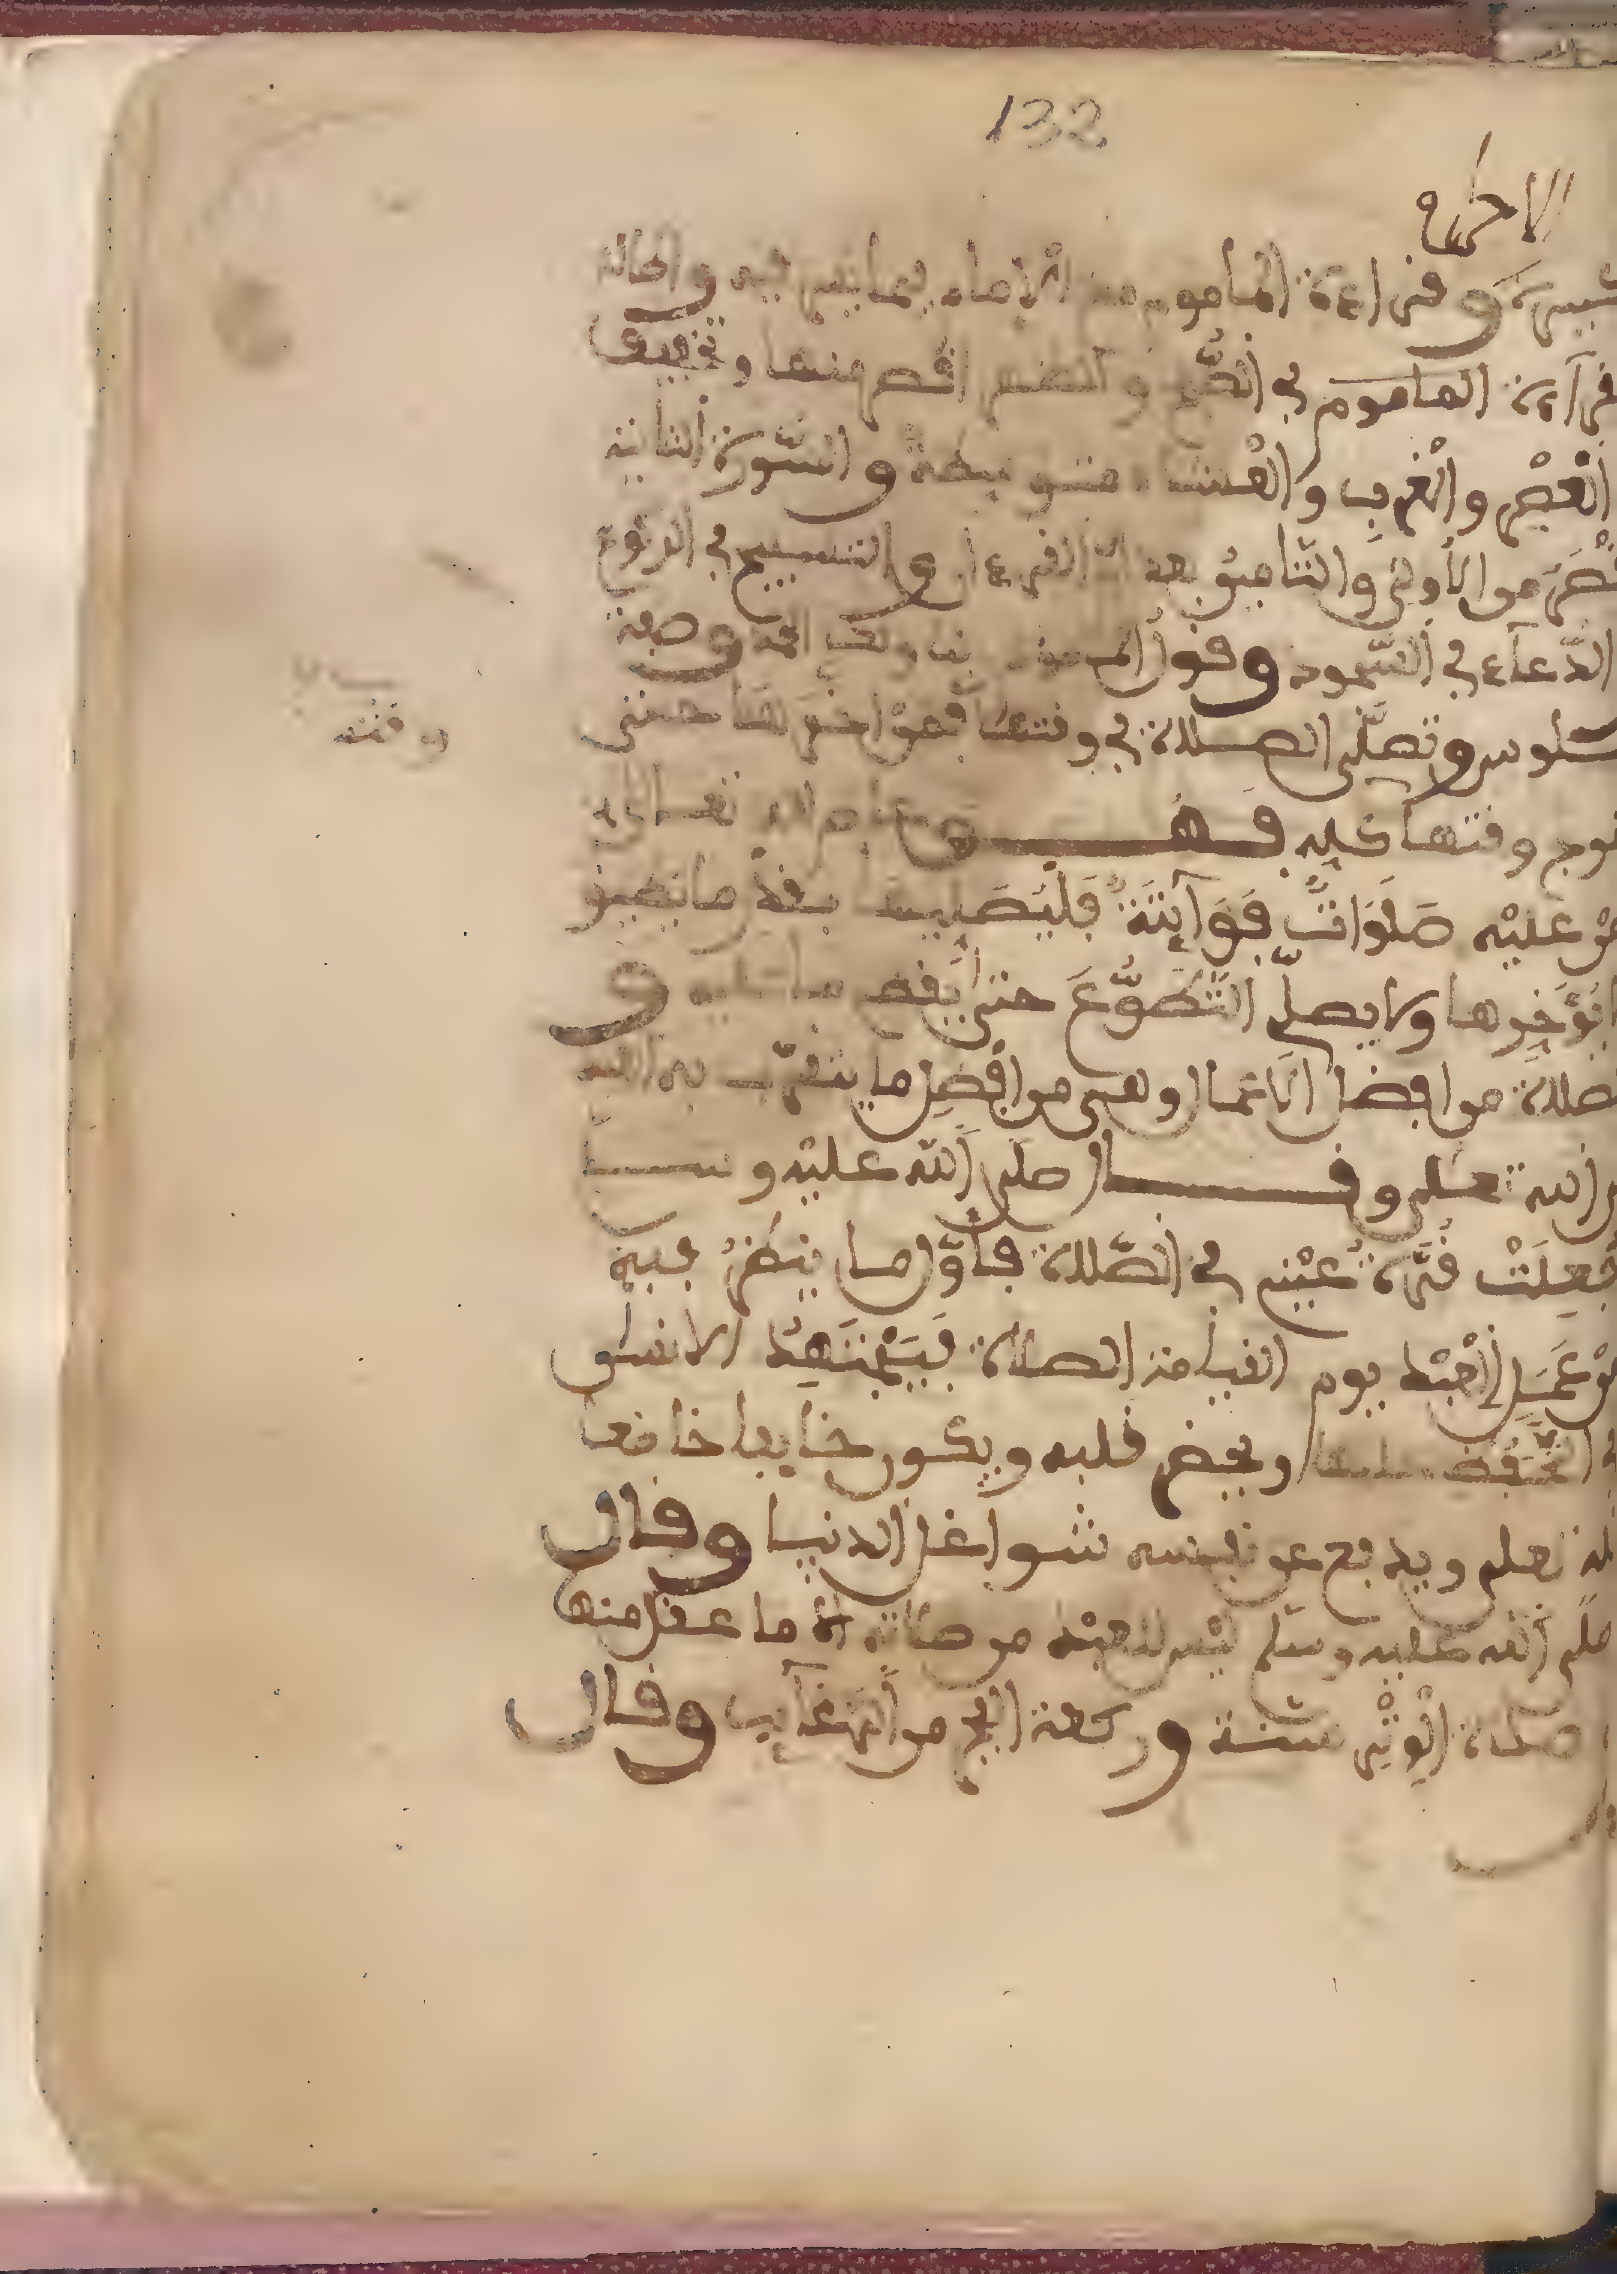 132
الاحرام
وقراءة الماموم مع الامام فيما يسر فيه واطالة
قرآءة الماموم في الصُّبْح والظهر اقصر منها وتخفيف
الْعَصْرِ والْمغرب والْعشاء متوسطةً والسُّورة الثانية
أَقْصَرَ من الأُولى والتّامين بعد امّ القرءان والتسبيح في الركوع
الدّعآء في السّجود وقول الماموم ربنا ولك الحمد وصفة
الجلوس وتصلّى الصلاة في وقتها فمن اخرها حتى
خروج وقتها عليه فهـــو عاص لله تعالى
من عليْه صَلَوَاتٌ فَوَآئِتَةٌ فليُصَليها بقدر ما يطيق
يُؤَخِّرها ولا يصلّي التَّطَوُّعَ حتى يقضي ما عليه و
الصلاة من افضل الاعمال وهى من افضل ما يتقرّب به العبد
الى الله تعلى وقـــال صلى الله عليْه وسلم
جُعِلَتْ قُرَّةُ عَيْنِي في الصّلاة فأوّل ما ينظَرُ فيه
منْ عَمَلِ الْعَبْد يوم القيامة الصلاة فَيَجْتَهِدُ الانسان
في التَّحَفُّظ عليها ويحضر قلبه ويكون خايفا خاضعا
لله تعلى ويدفع عن نفسه شواغل الدنيا وقال
صلى الله عليه وسلّم ليْس للعبْد من صلاته الا ما عقل منها
صلاة الْوِتْرِ سنة وركعة الفجر من الرّغآيب وقال
من
وقته